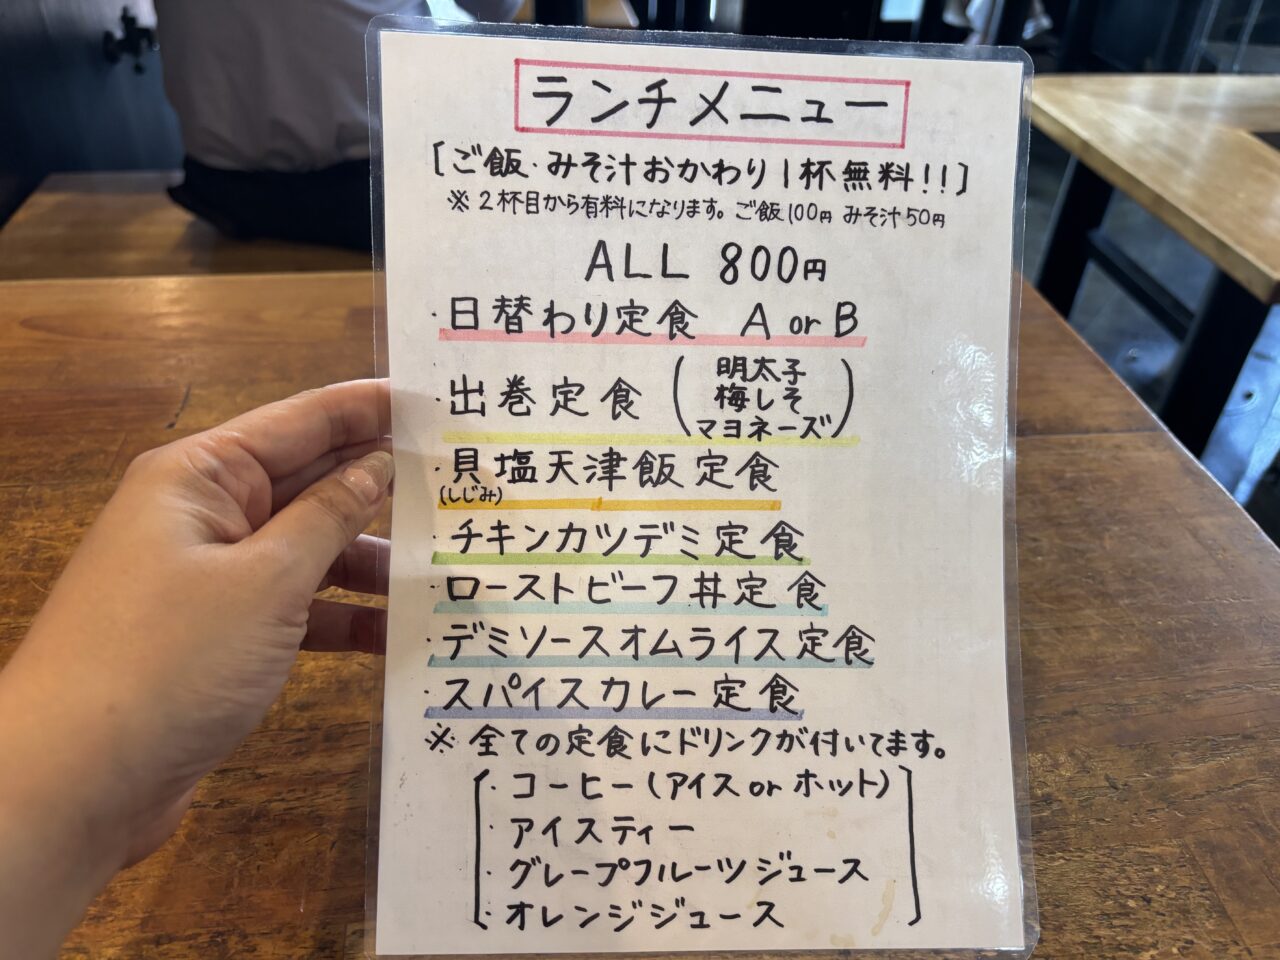 ランチメニュー
[ご飯・みそ汁おかわり1杯無料!!]
※2杯目から有料になります。ご飯100円 みそ汁50円
ALL 800円
・日替わり定食 A or B
・出巻定食 (明太子
梅しそ
マヨネーズ)
・貝塩天津飯定食
(しじみ)
・チキンカツデミ定食
・ローストビーフ丼定食
・デミソースオムライス定食
・スパイスカレー定食
※全ての定食にドリンクが付いてます。
・コーヒー(アイスorホット)
・アイスティー
・グレープフルーツジュース
・オレンジジュース